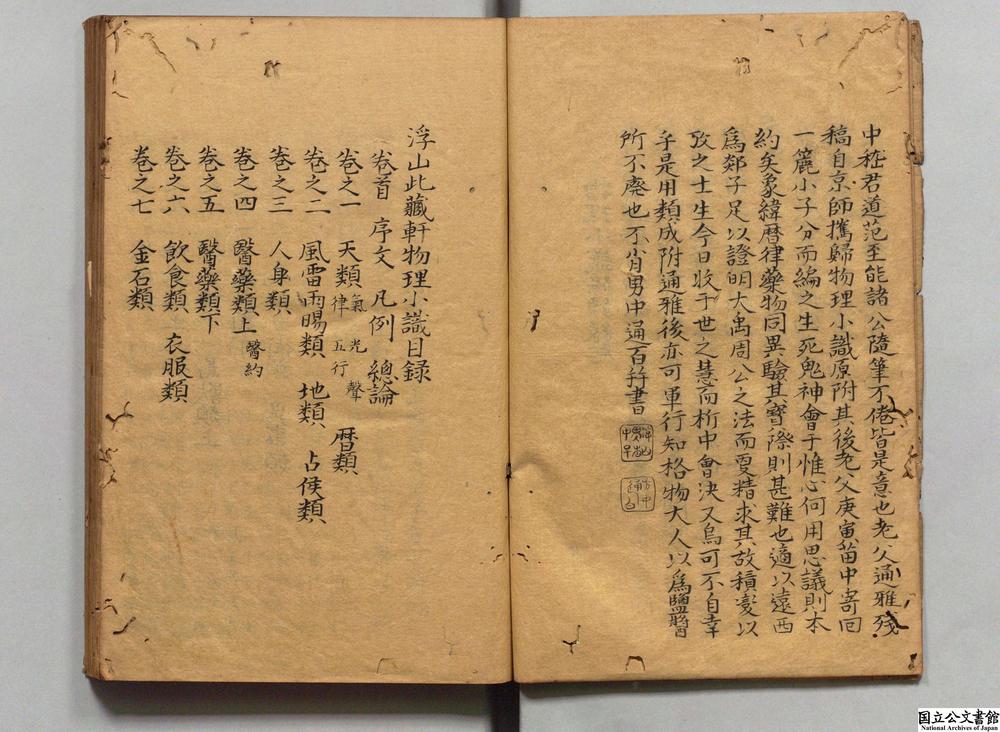 中嵇君道范至能諸公隨筆不倦皆是意也老父通雅殘
稿自京師攜歸物理小識原附其後老父庚寅苗中寄回
一簏小子分而編之生死鬼神會于惟心何用思議則本
約矣象緯曆律藥物同異驗其實際則甚難也適以遠西
為郯子足以證明大禹周公之法而更精求其故積變以
攷之士生今日收千世之慧而折中會決又烏可不自幸
乎是用類成附通雅後亦可單行知格物大人以為鹽醬
所不廢也不肖男中通百拜書
浮山此藏軒物理小識目錄
卷首 序文 凡例 總論
卷之一 天類 氣 光 聲 律 五行 曆類
卷之二 風雷雨暘類 地類 占候類
卷之三 人身類
卷之四 醫藥類上 醫約
卷之五 醫藥類下
卷之六 飲食類 衣服類
卷之七 金石類
国立公文書館
National Archives of Japan